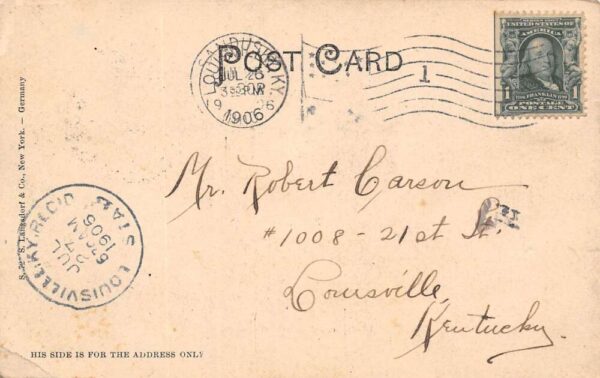 POST CARD
JUL 26
1906
1
SERIES 1902
UNITED STATES OF AMERICA
FRANKLIN
1 1
POSTAGE ONE CENT
S. Langsdorf & Co., New York. — Germany
Mr. Robert Carson
#1008 - 21st St.
Louisville,
Kentucky.
LOUISVILLE, KY. REC'D
JUL
27
6 30 AM
1906
STA B
HIS SIDE IS FOR THE ADDRESS ONLY